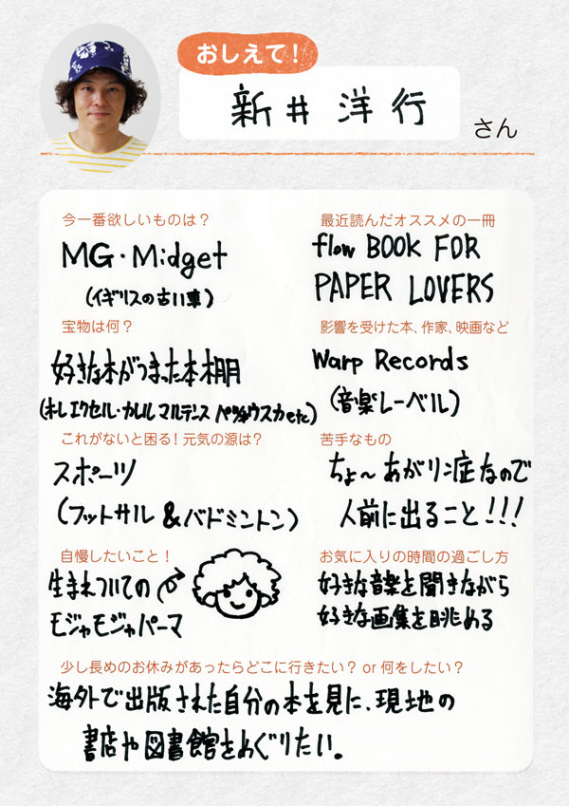 おしえて!
新井 洋行
さん
今一番欲しいものは?
MG・Midget
(イギリスの古い車)
宝物は何?
好きな本がつまった本棚
(ホレエクセル・カレルマルテンス ペツォウスカetc)
これがないと困る!元気の源は?
スポーツ
(フットサル &バドミントン)
自慢したいこと!
生まれついての
モジャモジャパーマ
最近読んだオススメの一冊
flow BOOK FOR
PAPER LOVERS
影響を受けた本、作家、映画など
Warp Records
(音楽レーベル)
苦手なもの
ちょ〜あがり症なので
人前に出ること!!!
お気に入りの時間の過ごし方
好きな音楽を聞きながら
好きな画集を眺める
少し長めのお休みがあったらどこに行きたい? or 何をしたい?
海外で出版された自分の本を見に、現地の
書店や図書館をめぐりたい。